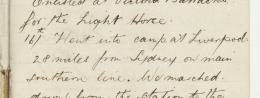 Enlisted at Victoria Barracks
for the Light Horse.
16th Went into camp at Liverpool
28 miles from Sydney on main
southern line. We marched
down from the station to the